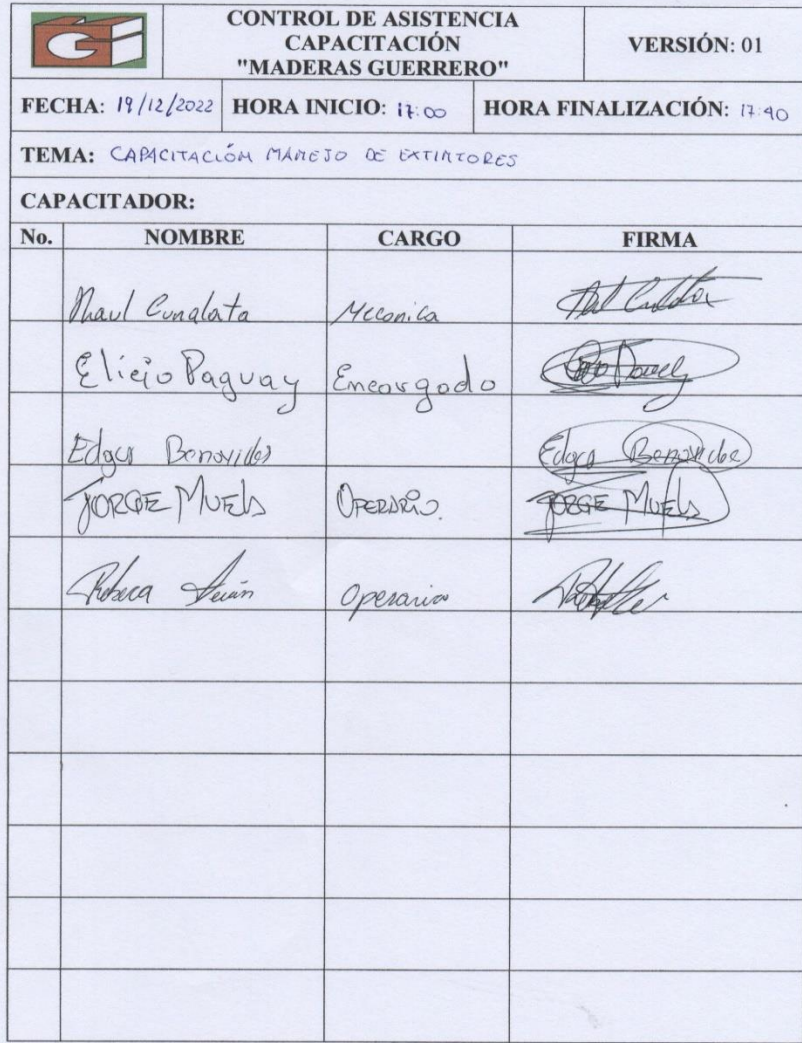 CONTROL DE ASISTENCIA
CAPACITACIÓN
"MADERAS GUERRERO"
VERSIÓN: 01
FECHA: 19/12/2022 HORA INICIO: 17:00 HORA FINALIZACIÓN: 17:40
TEMA: CAPACITACIÓN MANEJO DE EXTINTORES
CAPACITADOR:
No. NOMBRE CARGO FIRMA
Raul Cunalata Mecanica
Elicio Paguay Encargado
Edgar Benavides Edgar Benavides
JORGE MUELA OPERARIO. JORGE MUELA
Rebeca Operaria